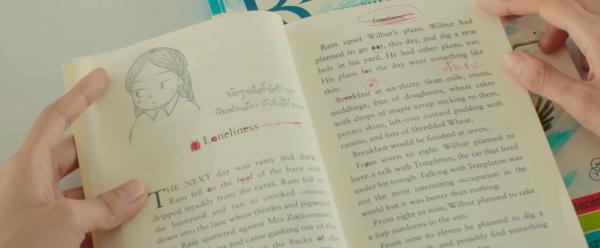 Loneliness
THE NEXT day was rainy and dark.
Rain fell on the roof of the barn and
dripped steadily from the eaves. Rain fell in
the barnyard and ran in crooked courses
down into the lane where thistles and pigweed
Rain spattered against Mrs Zuckerman's
and came gushing out of the
the backs of the
Loneliness
Rain upset Wilbur's plans. Wilbur had
planned to go out, this day, and dig a new
hole in his yard. He had other plans, too.
His plans for the day went something like
this:
Breakfast at six-thirty. Skim milk, crusts,
middlings, bits of doughnuts, wheat cakes
with drops of maple syrup sticking to them,
potato skins, left-over custard pudding with
raisins, and bits of Shredded Wheat.
Breakfast would be finished at seven.
From seven to eight, Wilbur planned to
have a talk with Templeton, the rat that lived
under his trough. Talking with Templeton was
not the most interesting occupation in the
world but it was better than nothing.
From eight to nine, Wilbur planned to take
a nap outdoors in the sun.
From nine to eleven he planned to dig a
and possibly find something